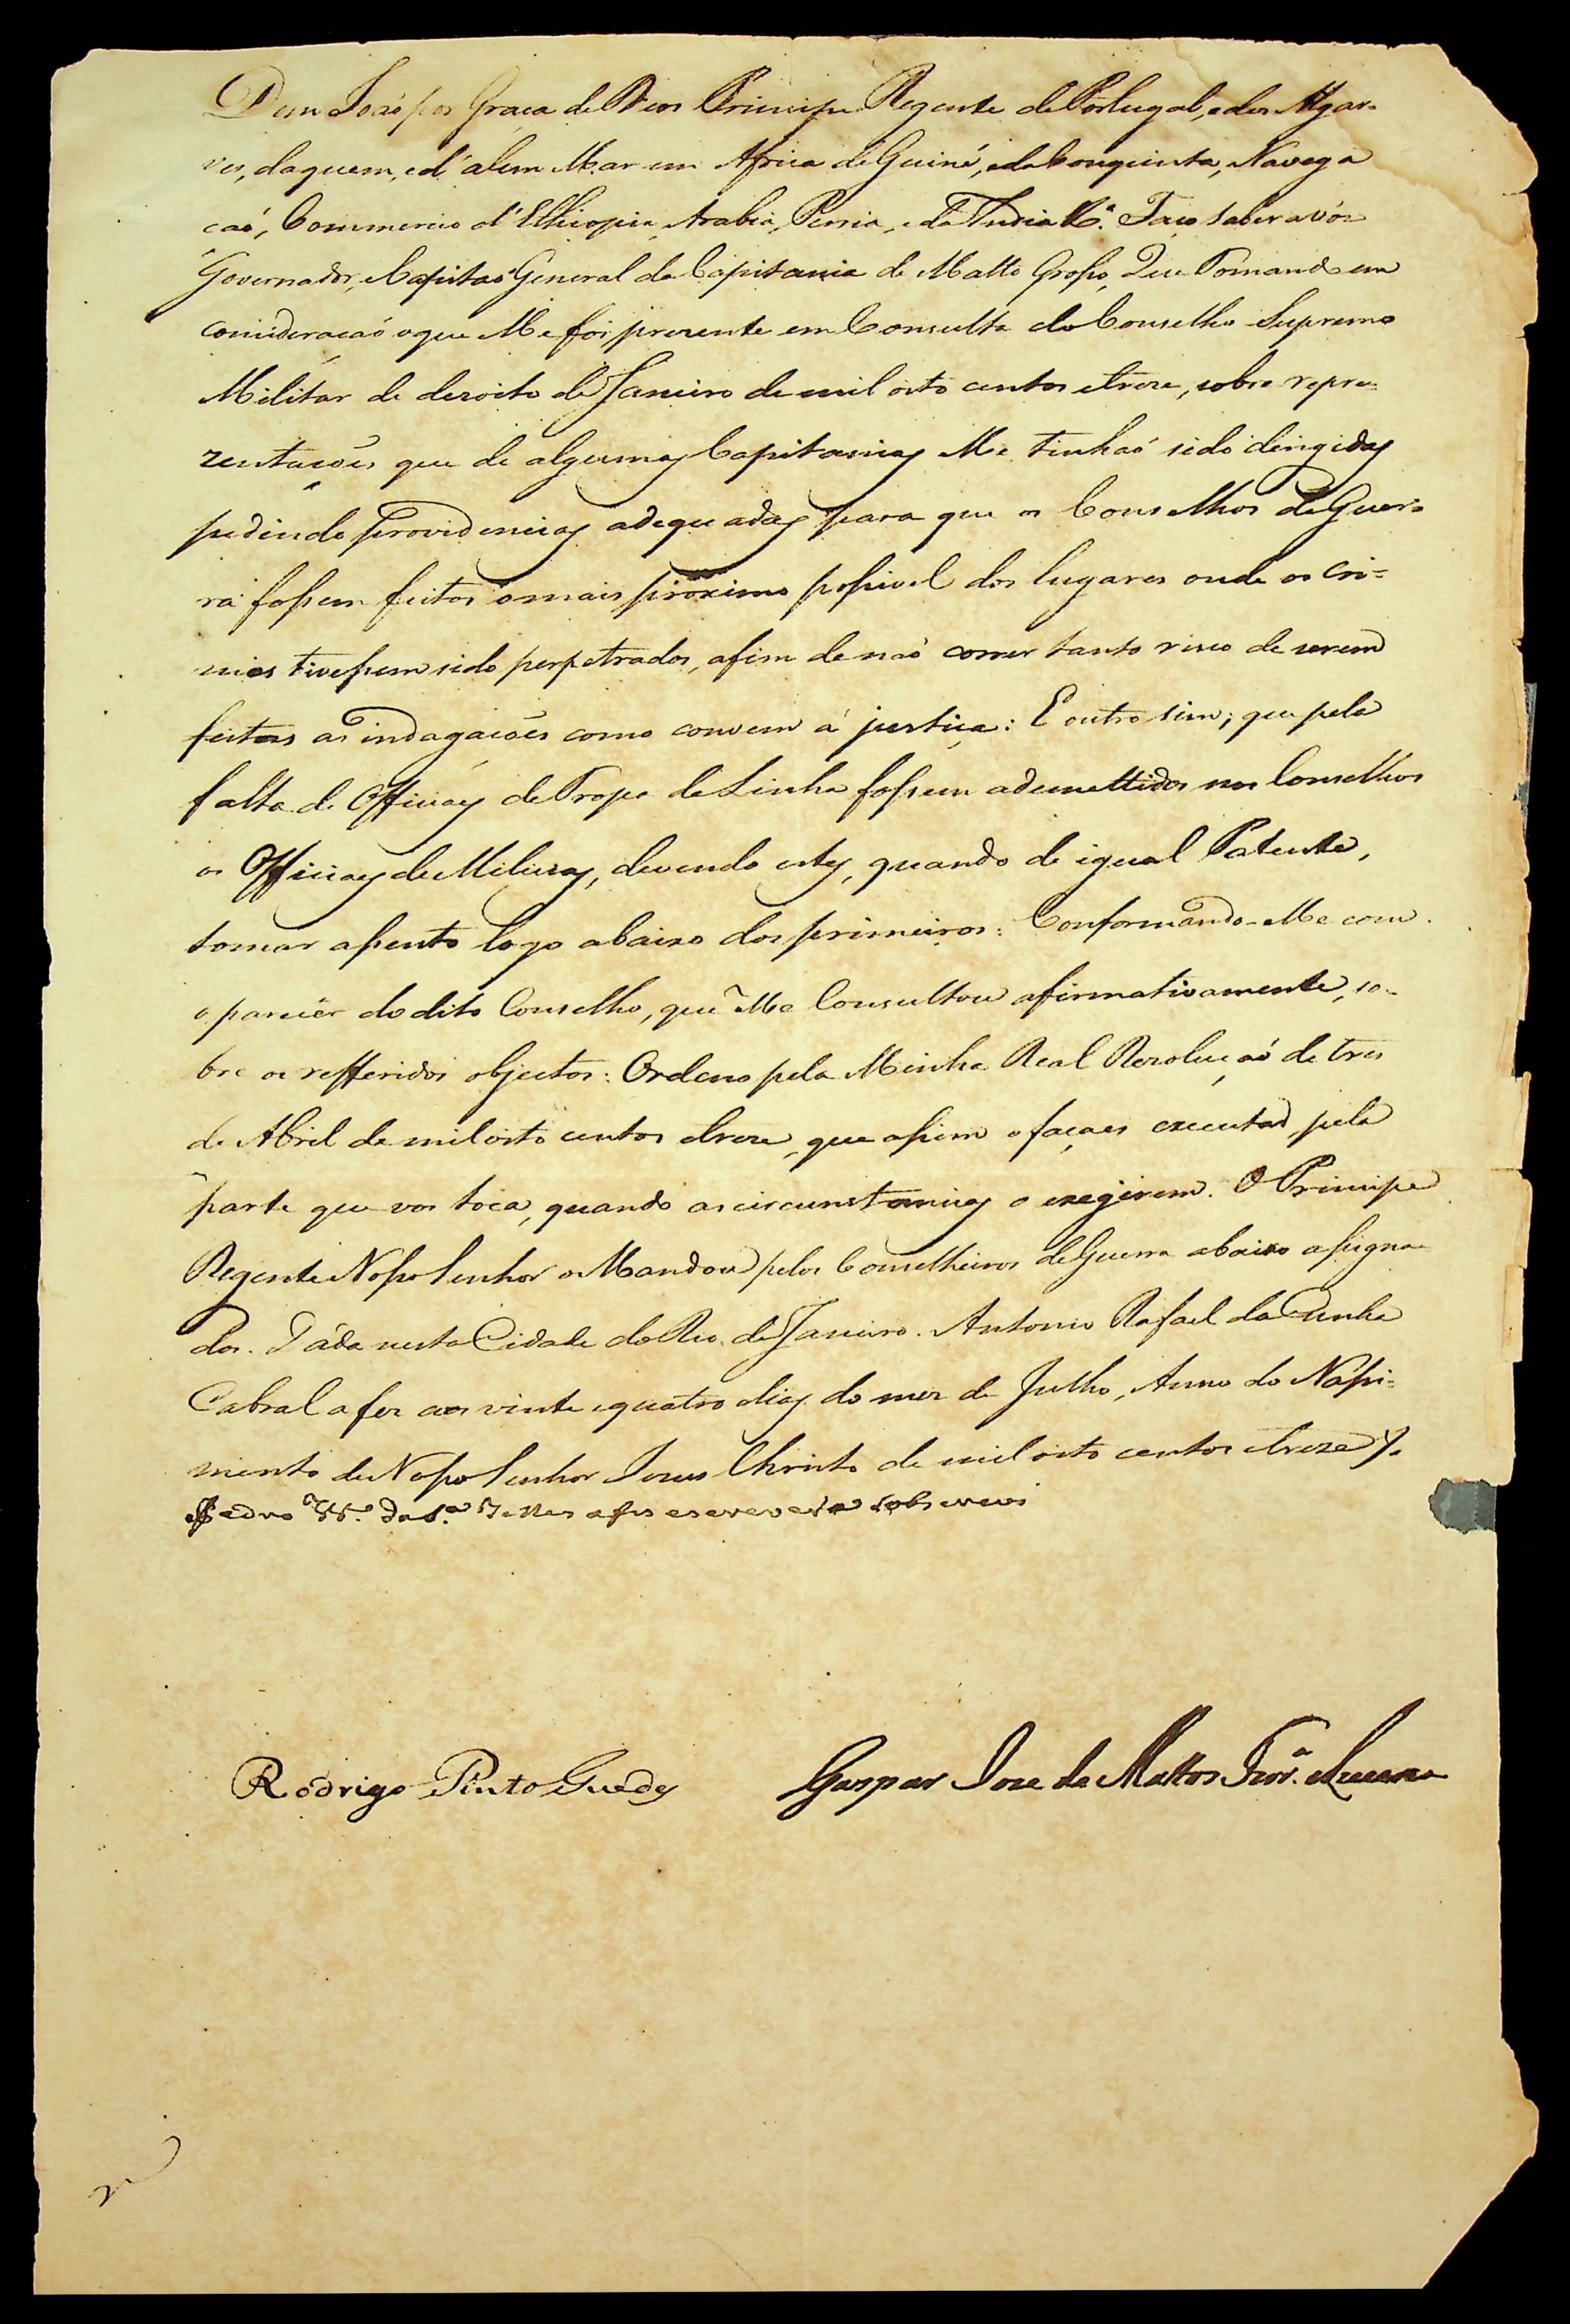 Dom João por Graça de Deos Principe Regente de Portugal, e dos Algar=
ves, daquem, e d'alem Mar em Africa de Guiné, e da Conquista, Navega
çaõ, Commercio d'Ethiopia, Arabia, Persia, e da India &ª. Faço saber a vós
Governador, e Capitaõ General da Capitania de Matto Grosso, Que Tomando em
consideraçaõ o que Me foi prezente em Consulta do Conselho Supremo
Militar de dezoito de Janeiro de mil oito centos e treze, sobre repre=
zentaçoẽs que de algumas Capitanias Me tinhaõ sido dirigidas
pedindo providencias adequadas para que os Conselhos de Guer=
ra fossem feitos o mais proximo possivel dos lugares onde os cri=
mes tivessem sido perpetrados, afim de naõ correr tanto risco de serem
feitas as indagaçoẽs como convem á justiça: E outro sim, que pela
falta de Officiaes de Tropa de Linha fossem ademettidos nos Conselhos
os Officiaes de Milicias, devendo estes, quando de igual Patente,
tomar assento logo abaixo dos primeiros: Conformando-Me com
o parecer do dito Conselho, que Me Consultou afirmativamente, so=
bre os refferidos objectos: Ordeno pela Minha Real Rezoluçaõ de tres
de Abril de mil oito centos e treze, que assim o façaes executar, pela
parte que vos toca, quando as circunstancias o exegirem. O Principe
Regente Nosso Senhor o Mandou pelos Conselheiros de Guerra abaixo assigna=
dos. Dáda nesta Cidade do Rio de Janeiro. Antonio Rafael da Cunha
Cabral a fez aos vinte e quatro dias do mez de Julho, Anno do Nassi=
mento de Nosso Senhor Jesus Christo de mil oito centos e treze
Pedro Vª. da Sª. Telles a fis escrever e sobscrevi
Rodrigo Pinto Guedes
Gaspar Jose de Mattos Frrª. e Lucena